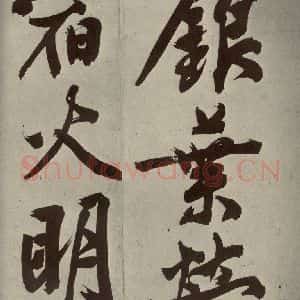 銀葉
宿火明
Shufawang.CN